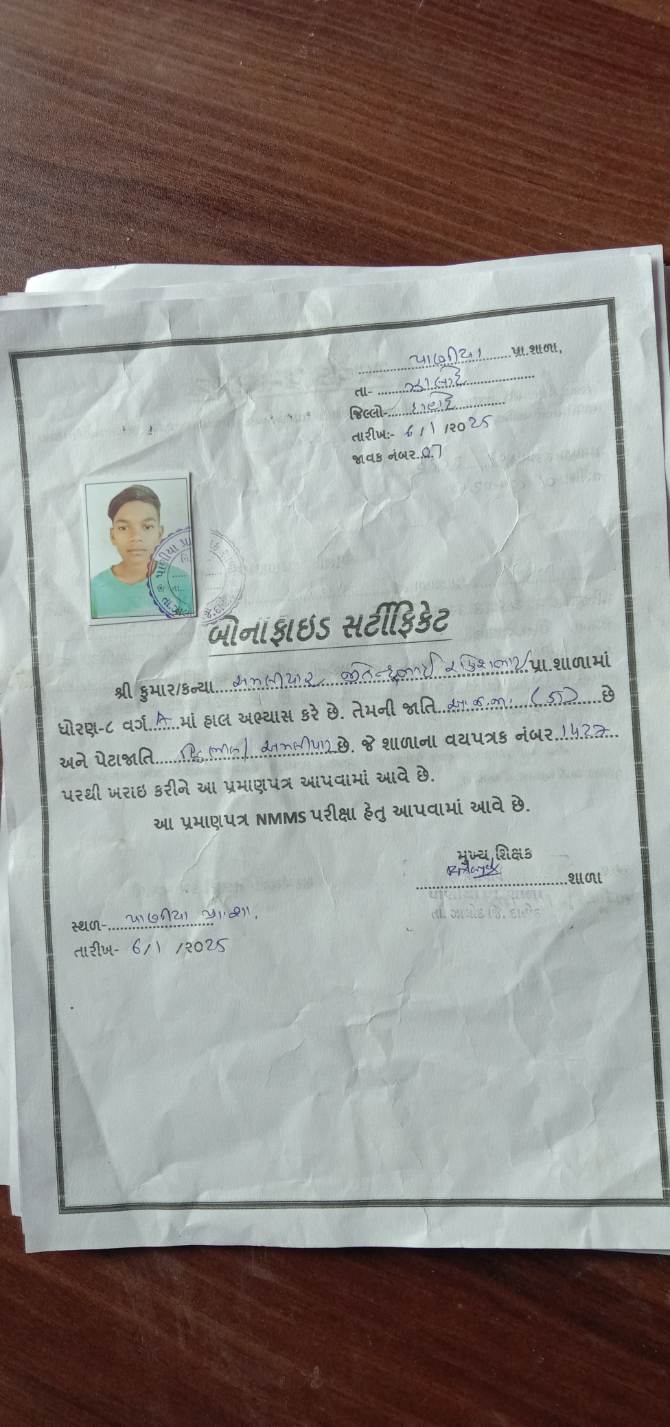 પાણીયા પ્રા.શાળા,
તા- ઝાલોદ
જિલ્લો- દાહોદ
તારીખ:- 6/1/2025
જાવક નંબર. 27
બોનાફાઇડ સર્ટીફિકેટ
શ્રી કુમાર/કન્યા અમલીયાર જીતેન્દ્રભાઈ પ્રા.શાળામાં
ધોરણ-૮ વર્ગ A માં હાલ અભ્યાસ કરે છે. તેમની જાતિ અ.જ.જા. (ST) છે
અને પેટાજાતિ અમલીયાર છે. જે શાળાના વયપત્રક નંબર 1427
પરથી ખરાઇ કરીને આ પ્રમાણપત્ર આપવામાં આવે છે.
આ પ્રમાણપત્ર NMMS પરીક્ષા હેતુ આપવામાં આવે છે.
મુખ્ય શિક્ષક
શાળા
સ્થળ- પાણીયા પ્રા.શા.
તારીખ- 6/1/2025